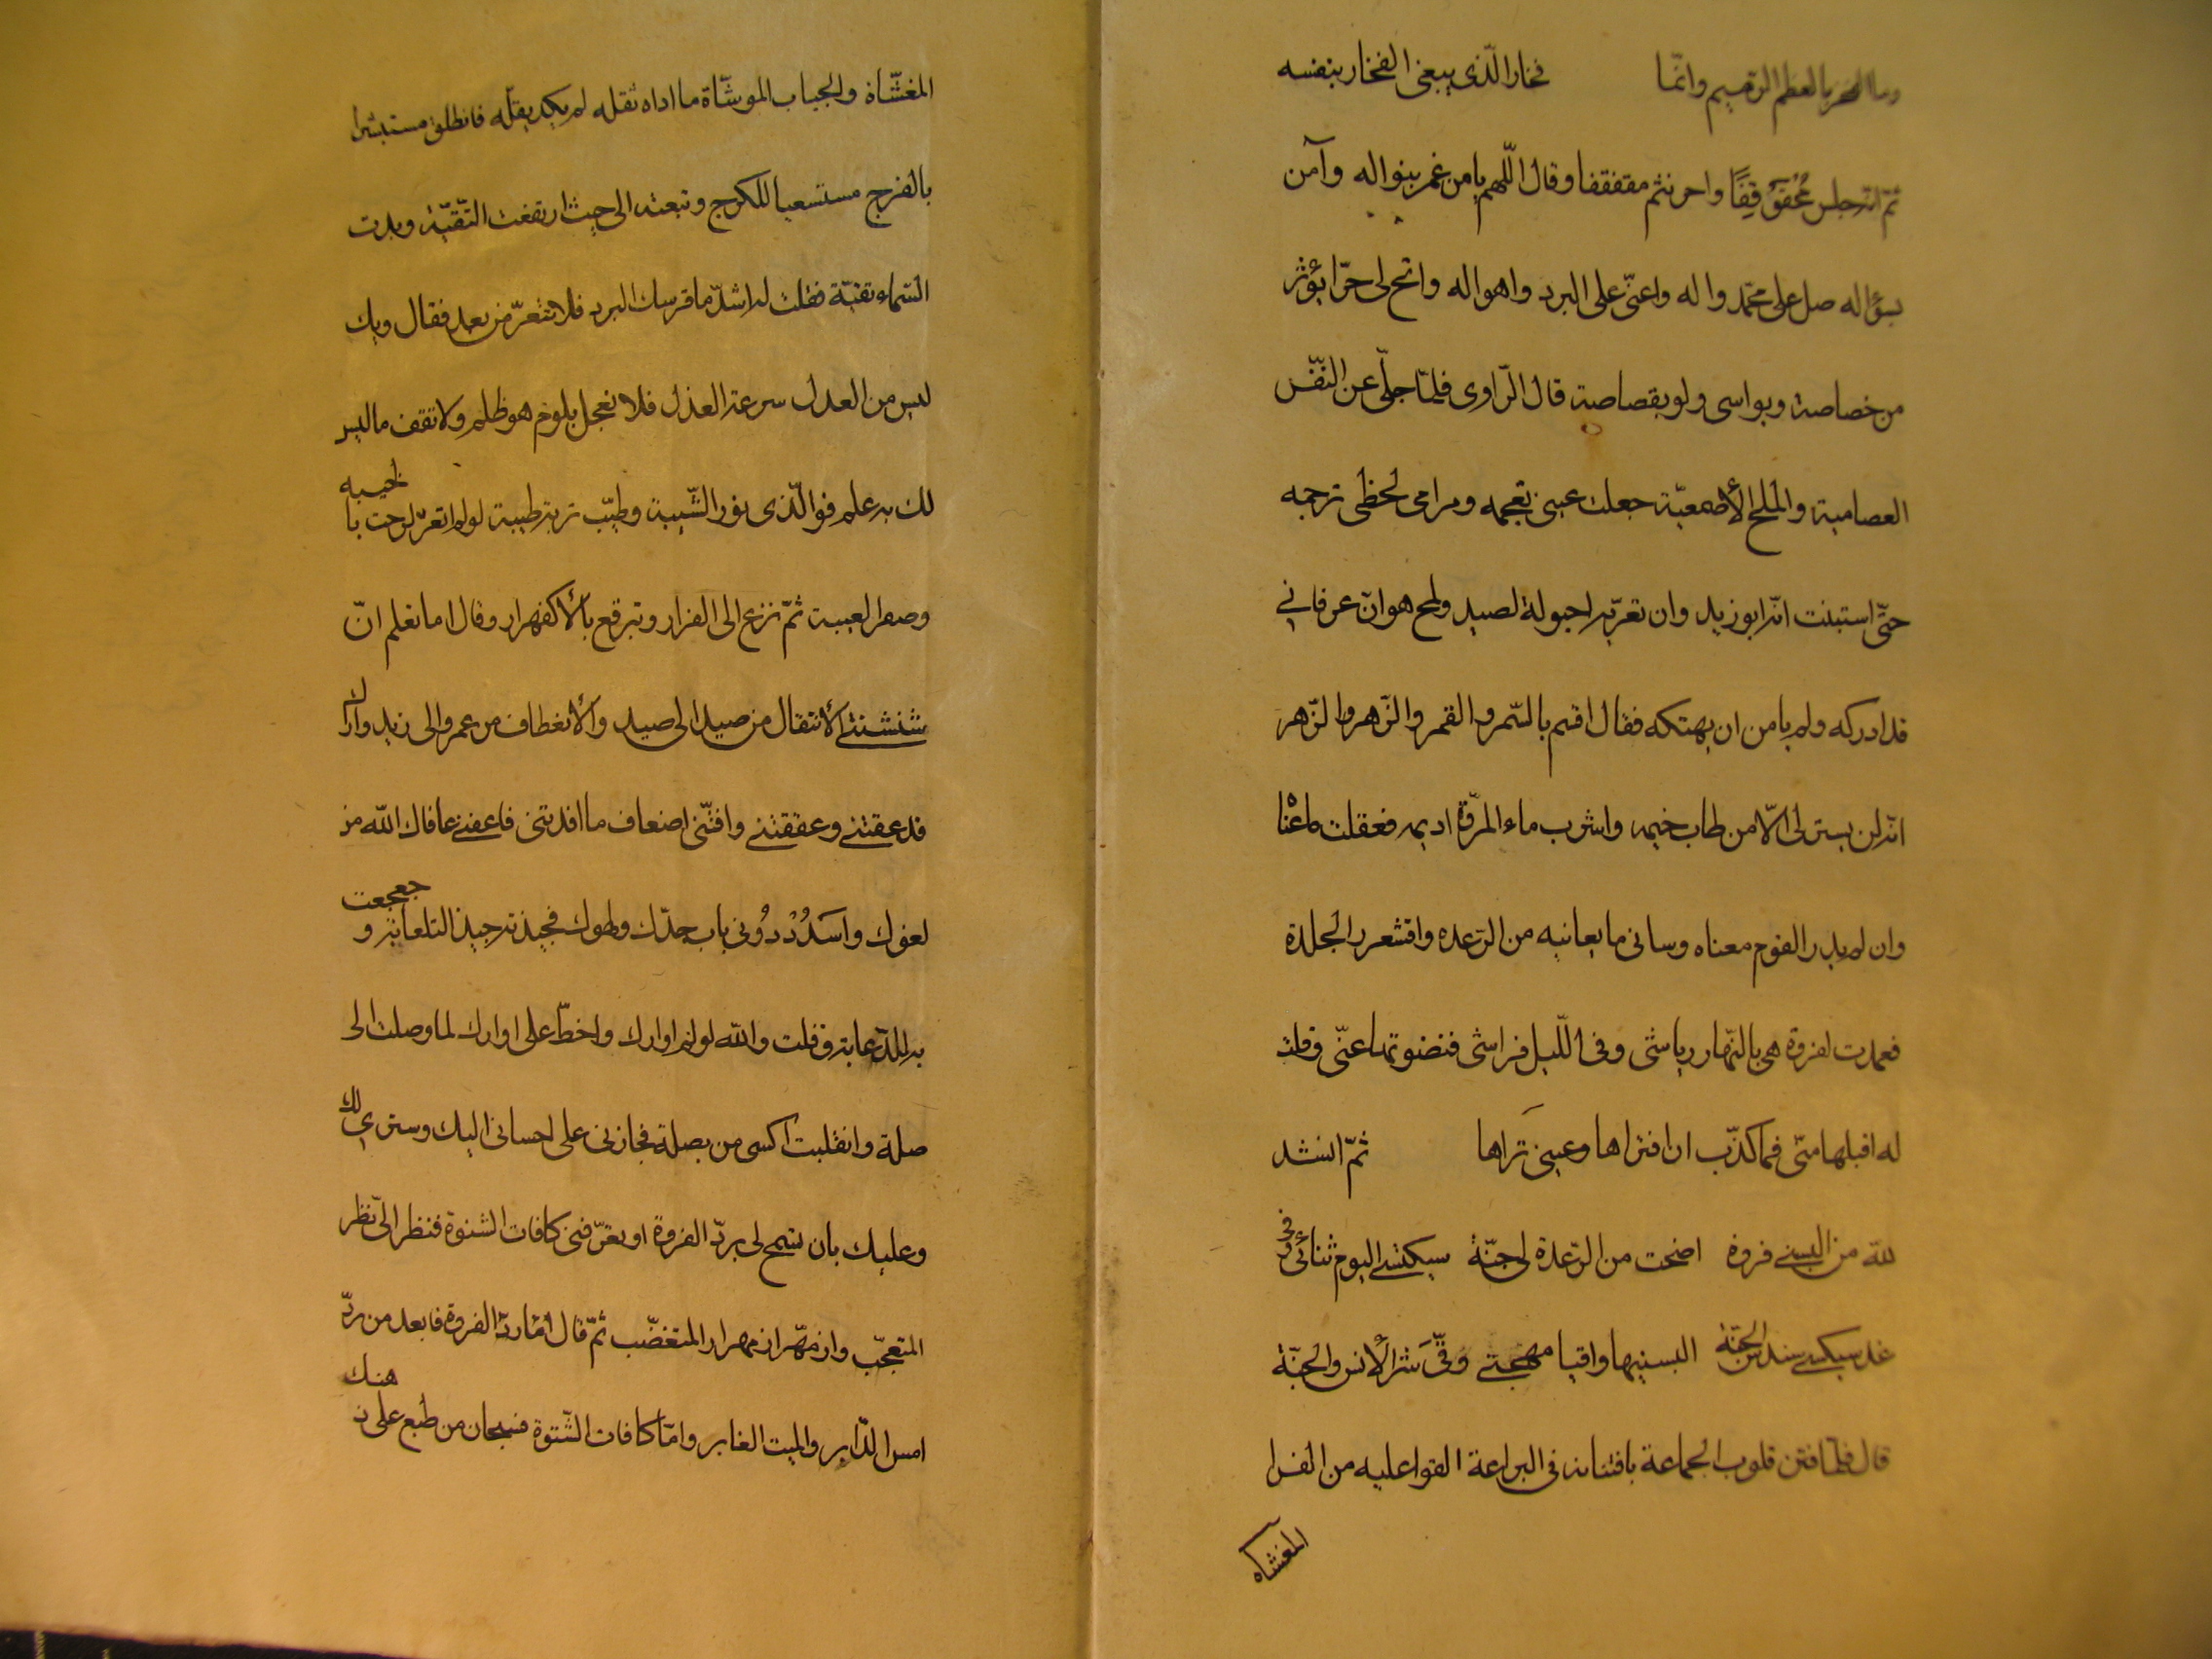 وما الفخر بالعظم الرميم وانّما فخار الّذى يبغى الفخار بنفسه
ثمّ انّه جلس مُحْقَوْقِفًا واحرنثم مقفقفا وقال اللّهم يا من غمر بنواله وآمن
بسؤاله صل على محمّد واله واعنّى على البرد واهواله واتح لى حرّا يؤثر
من خصاصة ويواسى ولو بقصاصة قال الرّاوى فلمّا جلّى عن النّفس
العصامية والملح الأصمعيّة جعلت عينى تعجمه ومرامى لحظى ترجمه
حتّى استبنت انّه ابو زيد وان تعرّيه احبولة لصيد ولمح هو انّ عرفاني
قد ادركه ولم يامن ان يهتكه فقال اقسم بالسّمر والقمر والزّهر والزّهر
انّه لن يسترنى الّا من طاب خيمه واشرب ماء المروّة اديمه فعقلت ما عناه
وان لم يدر القوم معناه وسانى ما يعانيه من الرّعده واقشعرر الجلدة
فعمدت لفروة هى بالنّهار رياشى وفى اللّيل فراشى فنضوتها عنّى وقلت
له اقبلها منّى فما كذّب ان افتراها وعينى تراها ثمّ انشد
للّه من البسنى فروة اضحت من الرّعدة لى جنّة سيكتسى اليوم ثنائى وفى
غد سيكسى سندس الجنّة البسنيها واقيا مهجتى وقّى شرّ الأنس والجنّة
قال فلمّا فتن قلوب الجماعة بافتنانه فى البراعة القوا عليه من الفرا
المغشاه
المغشّاة والجباب الموشّاة ما اداه ثقله لم يكد يقلّه فانطلق مستبشرا
بالفرج مستسعيا للكرج وتبعته الى حيث ارتفعت التّقيّة وبدت
السّماء نقيّة فقلت له اشدّ ما قرسك البرد فلا تتعرّ من بعد فقال ويك
ليس من العدل سرعة العذل فلا تعجل بلوم هو ظلم ولا تقف ما ليس
لك به علم فو الّذى نوّر الشّيبة وطيّب تربة طيبة لو لم اتعرّ لرحت با
لخيبه
وصفر العيبة ثمّ نزع الى الفرار وتبرقع بالأكفهرار وقال اما تعلم انّ
شنشنتى الأنتقال من صيد الى صيد والأنعطاف من عمرو الى زيد واراك
قد عقتنى وعققتنى وافتّنى اضعاف ما افدتنى فاعفنى عافاك اللّه من
لغوك واسْدُدْ دُونى باب جدّك ولهوك فجبذته جبذ التلعابة و
جعجعت
به للدّعابة وقلت واللّه لو لم اوارك واخطّ على اوارك لما وصلت الى
صلة وانقلبت اكسى من بصلة فجازنى على احسانى اليك وسترى لك
وعليك بان تسمح لى بردّ الفروة او تعرّفنى كافات الشتوة فنظر الىّ نظر
المتعجّب وازمهرّ ازمهرار المتغضّب ثمّ قال امّا ردّ الفروة فابعد من ردّ
امس الدّابر والميت الغابر وامّا كافات الشّتوة فسبحان من طبع على ذ
هنك